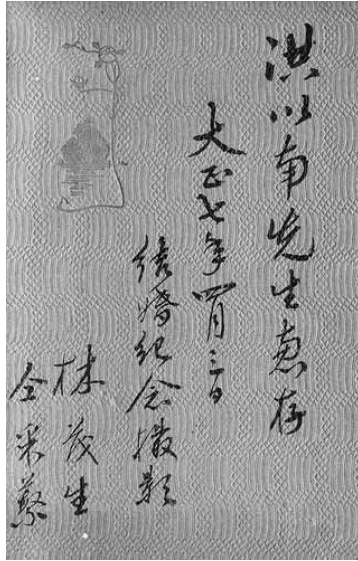 洪以南先生惠存
大正七年四月三日
結婚紀念撮影
林茂生
仝采蘩